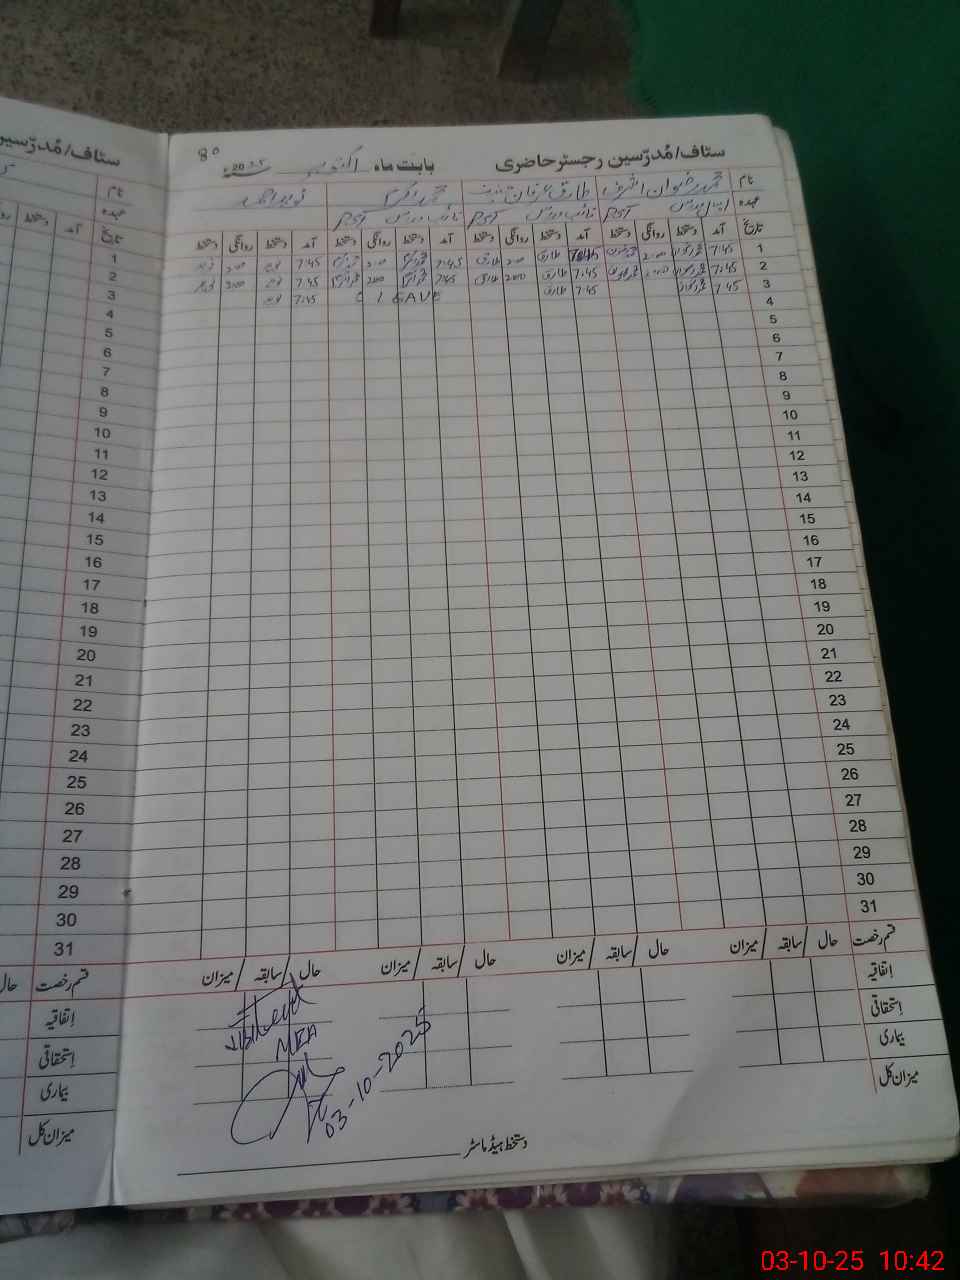 سٹاف/مُدرّسین رجسٹر حاضری بابت ماہ اکتوبر 2025 80
سٹاف/مُدرّسین
نام محمد رضوان اشرف طارق عرفان محمد اکرم نوید احمد
عہدہ PST نائب مدرس PST نائب مدرس PST
تاریخ آمد دستخط روانگی دستخط آمد دستخط روانگی دستخط آمد دستخط روانگی دستخط آمد دستخط روانگی دستخط
1 7:45 2:00 7:45 طارق 2:00 طارق 7:45 محمد اکرم 2:00 محمد اکرم 7:45 نوید 2:00 نوید
2 7:45 2:00 7:45 طارق 2:00 طارق 7:45 محمد اکرم 2:00 محمد اکرم 7:45 نوید 2:00 نوید
3 7:45 7:45 طارق C LEAVE 7:45 نوید
4
5
6
7
8
9
10
11
12
13
14
15
16
17
18
19
20
21
22
23
24
25
26
27
28
29
30
31
قسم رخصت حال/سابقہ/میزان حال/سابقہ/میزان حال/سابقہ/میزان حال/سابقہ/میزان
اِتفاقیہ
اِستحقاقی
بیماری
میزان کل
Visited
MEA
03-10-2025
دستخط ہیڈ ماسٹر
نام
عہدہ
تاریخ آمد دستخط
1
2
3
4
5
6
7
8
9
10
11
12
13
14
15
16
17
18
19
20
21
22
23
24
25
26
27
28
29
30
31
قسم رخصت حال
اِتفاقیہ
اِستحقاقی
بیماری
میزان کل
03-10-25 10:42